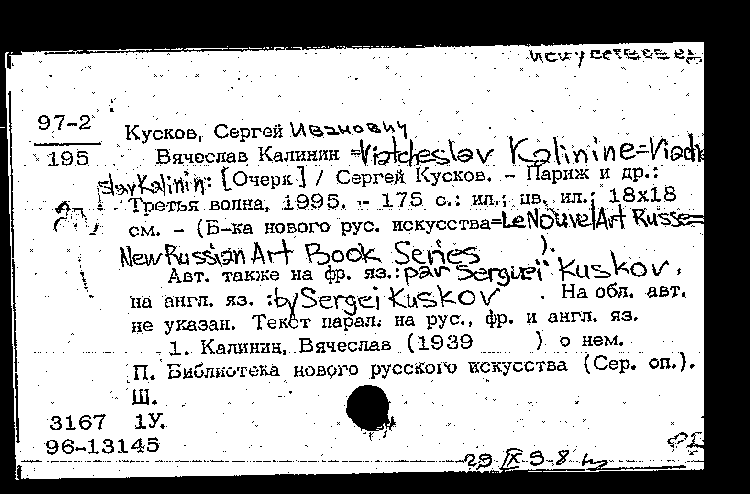 искусство
97-2
195
Кусков, Сергей Иванович
Вячеслав Калинин =Viatcheslav Kalinine=Viach
slav Kalinin: [Очерк] / Сергей Кусков. - Париж и др.:
Третья волна, 1995. - 175 с.: ил.; цв. ил.; 18х18
см. - (Б-ка нового рус. искусства=Le Nouvel Art Russe=
New Russian Art Book Series ).
Авт. также на фр. яз.: par Sergueï Kuskov,
на англ. яз. : by Sergei Kuskov . На обл. авт.
не указан. Текст парал. на рус., фр. и англ. яз.
1. Калинин, Вячеслав (1939 ) о нем.
П. Библиотека нового русского искусства (Сер. оп.).
Ш.
3167 1У.
96-13145
29 IX 98